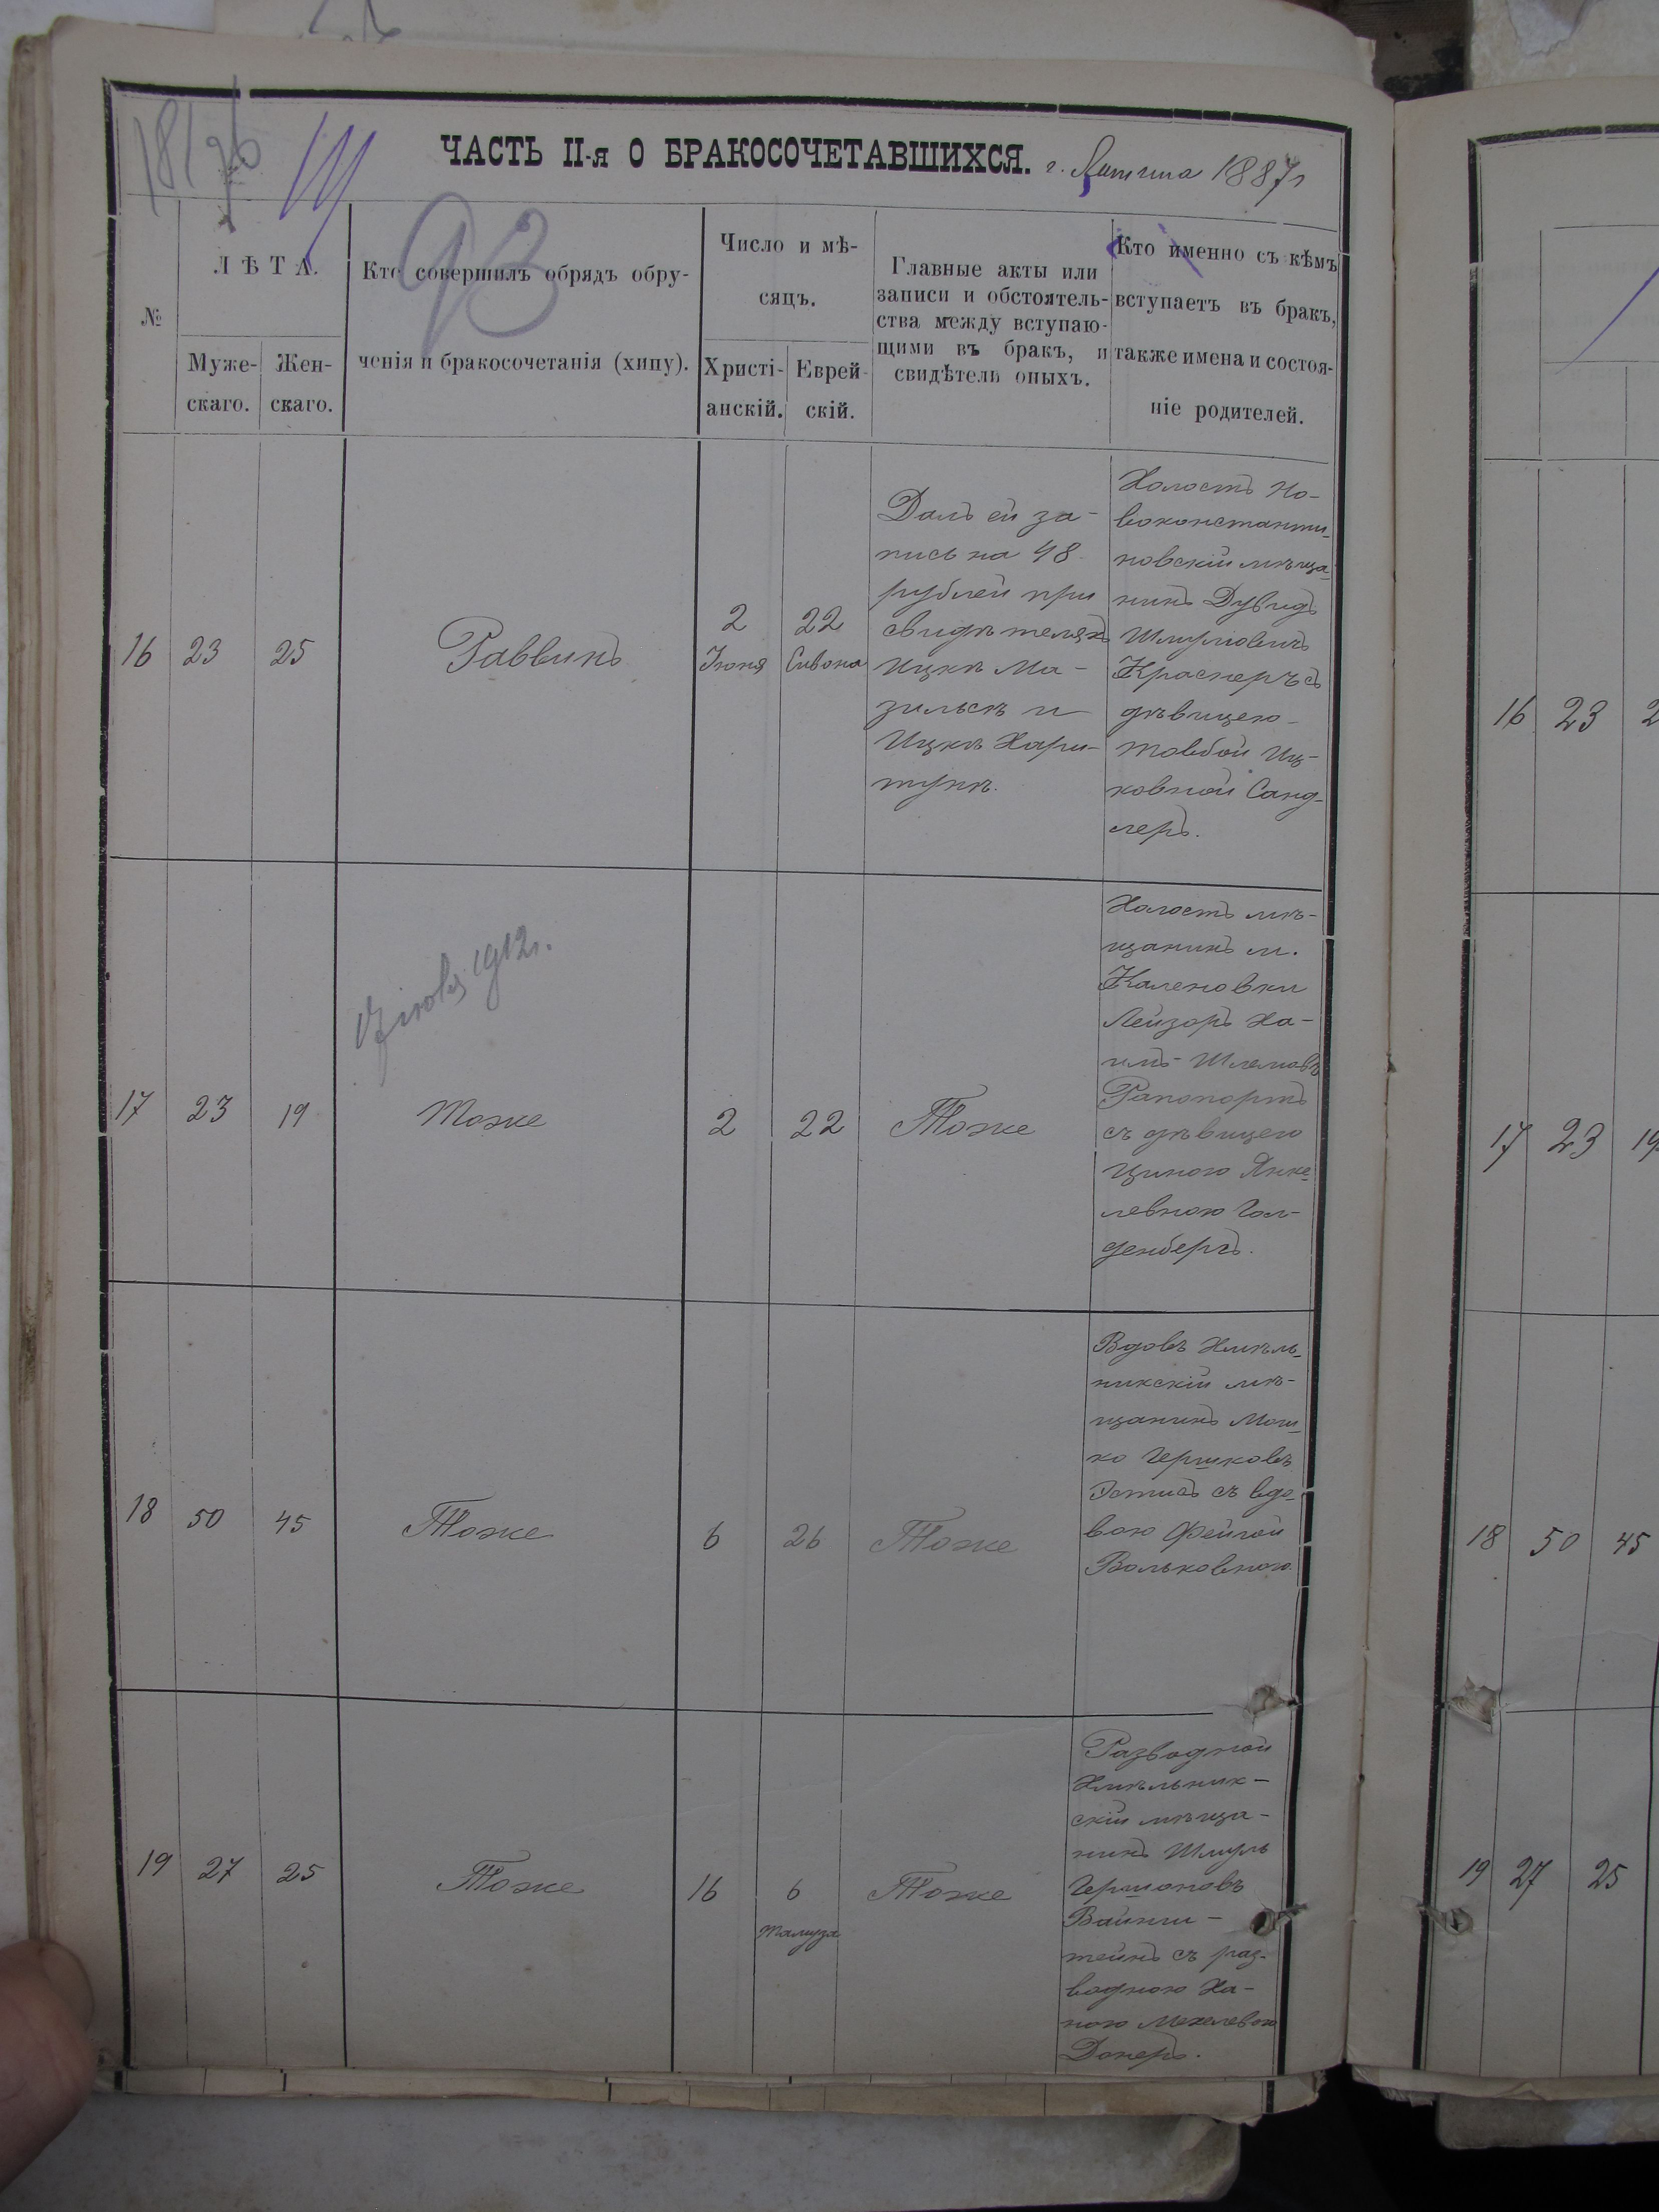 ЧАСТЬ II-я О БРАКОСОЧЕТАВШИХСЯ. г. Литина 1887 г
93
№
ЛѢТА.
Муже-
скаго.
Жен-
скаго.
Кто совершилъ обрядъ обру-
ченія и бракосочетанія (хипу).
Число и мѣ-
сяцъ.
Христі-
анскій.
Еврей-
скій.
Главные акты или
записи и обстоятель-
ства между вступаю-
щими въ бракъ, и
свидѣтели оныхъ.
Кто именно съ кѣмъ
вступаетъ въ бракъ,
также имена и состоя-
ніе родителей.
16
23
25
Раввинъ
2
Іюня
22
Сивона
Далъ ей за-
пись на 48
рублей при
свидѣтеляхъ
Ицкѣ Ма-
зильскѣ и
Ицкѣ Хари-
тункѣ.
Холостъ Но-
воконстанти-
новскій мѣща-
нинъ Дувидъ
Шмулювичъ
Краснеръ съ
дѣвицею
Товбой Иц-
ковной Санд-
леръ.
17
23
19
1912 г.
Тоже
2
22
Тоже
Холостъ мѣ-
щанинъ м.
Каленовки
Лейзоръ Ха-
имъ-Шлемовъ
Рапопортъ
съ дѣвицею
Циною Янке-
левною Гол-
денбергъ.
18
50
45
Тоже
6
26
Тоже
Вдовъ Хмѣль-
никскій мѣ-
щанинъ Мош-
ко Гершковъ
съ вдо-
вою Фейгой
Вольковною
19
27
25
Тоже
16
6
Тамуза
Тоже
Разводной
Хмѣльник-
скій мѣща-
нинъ Шмуль
Гершоновъ
Вайнш-
тейнъ съ раз-
водною Ха-
ною Мехелевою
Донеръ.
16
23
17
23
19
18
50
45
19
27
25